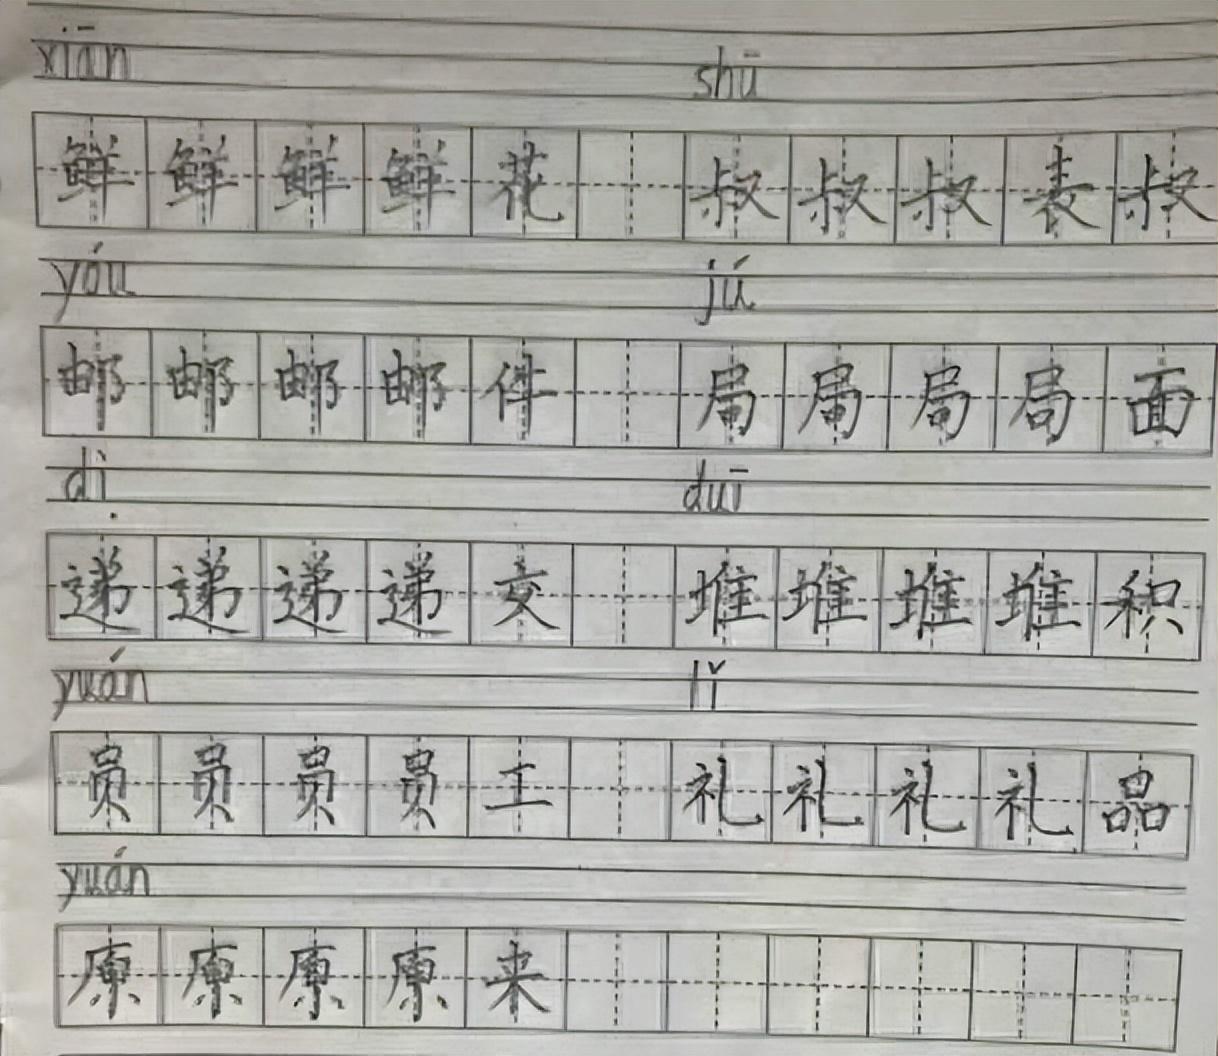 xiān shū
鲜鲜鲜鲜花 叔叔叔表叔
yóu jú
邮邮邮邮件 局局局局面
dì duī
递递递递交 堆堆堆堆积
yuán lǐ
员员员员工 礼礼礼礼品
yuán
原原原原来